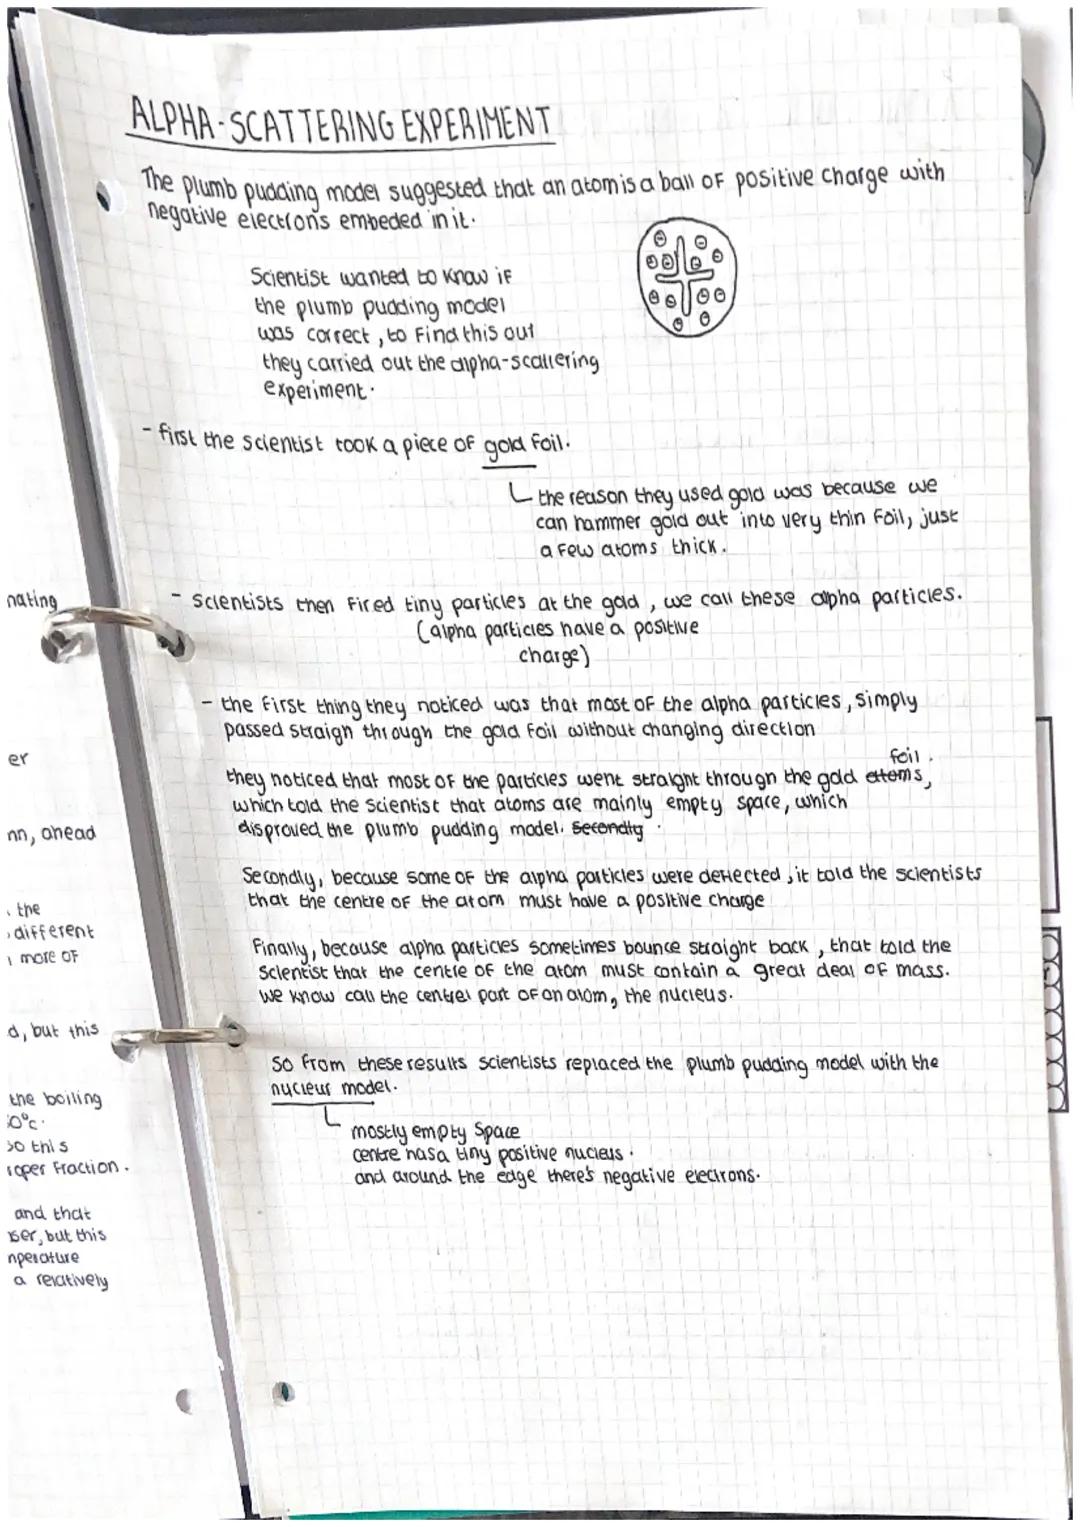 ALPHA-SCATTERING EXPERIMENT
The plumb pudding model suggested that an atom is a ball of positive charge with
negative electrons embeded in it.
Scientist wanted to know if
the plumb pudding model
was correct, to find this out
they carried out the alpha-scattering
experiment.
- first the scientist took a piece of gold foil.
the reason they used gold was because we
can hammer gold out into very thin foil, just
a few atoms thick.
- scientists then fired tiny particles at the gold, we call these alpha particles.
(alpha particles have a positive
charge)
- the first thing they noticed was that most of the alpha particles, simply
passed straign through the gold foil without changing direction
foil.
they noticed that most of the particles went straight through the gold attoms,
which told the scientist that atoms are mainly empty space, which
disproved the plumb pudding model. Secondly.
Secondly, because some of the alpha particles were deflected, it told the scientists
that the centre of the atom must have a positive charge
Finally, because alpha particles sometimes bounce straight back, that told the
scientist that the centre of the atom must contain a great deal of mass.
we know call the centrel part of an atom, the nucleus.
So from these results scientists replaced the plumb pudding model with the
nucleur model.
mostly empty space
centre has a tiny positive nucleus.
and around the edge there's negative electrons.
nating
er
nn, ahead
. the
different
more of
d, but this
the boiling
0°c.
so this
roper fraction.
and that
ser, but this
nperature
a relatively